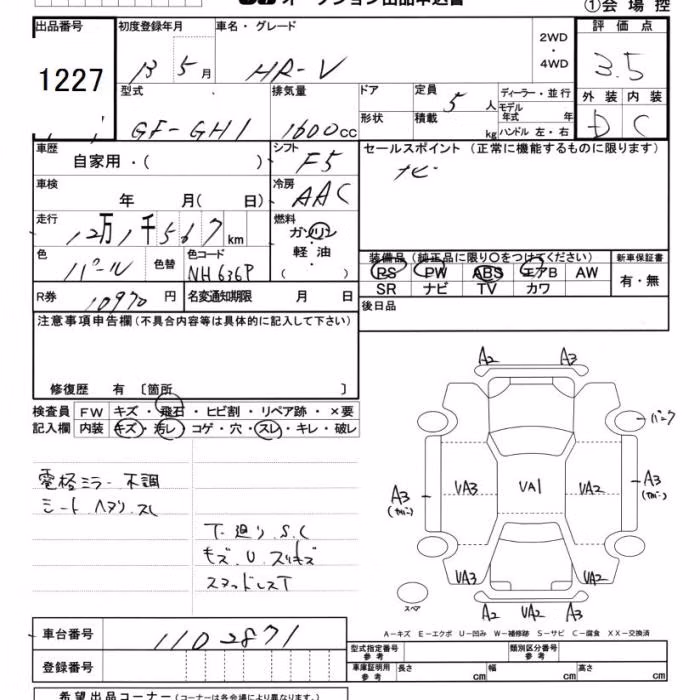 オークション出品申込書
①会場控
出品番号 初度登録年月 車名・グレード 2WD・4WD 評価点
1227 13 5月 HR-V 3.5
型式 排気量 ドア 定員 5人 ディーラー・並行 外装 内装
GF-GH1 1600cc 形状 積載 kg モデル年式 年 D C
ハンドル 左・右
車歴 自家用・( ) シフト F5 セールスポイント (正常に機能するものに限ります)
車検 年 月( 日) 冷房 AAC ナビ
走行 12万1千567km 燃料 ガソリン・軽油・( )
色 パール 色替 色コード NH636P
装備品 (純正品に限り○をつけてください) 新車保証書
PS PW ABS エアB AW 有・無
SR ナビ TV カワ
R券 10970円 名変通知期限 月 日 後日品
注意事項申告欄 (不具合内容等は具体的に記入して下さい)
修復歴 有 〔箇所 〕
検査員 FW キズ・飛石・ヒビ割・リペア跡・×要
記入欄 内装 キズ・汚レ・コゲ・穴・スレ・キレ・破レ
電格ミラー不調
シートヘタリ.スレ
下廻りS.C
キズ.U.スリキズ
スタッドレスT
A2 A3
パンク
A3 VA3 VA1 VA2 A3
VA3 VA2
スペア
A2 VA2 A3
A-キズ E-エクボ U-凹み W-補修跡 S-サビ C-腐食 XX-交換済
車台番号 1102871 型式指定番号 参考 類別区分番号 参考
登録番号 車庫証明用 参考 長さ cm 幅 cm 高さ cm
希望出品コーナー (コーナーは各会場により異なります。)